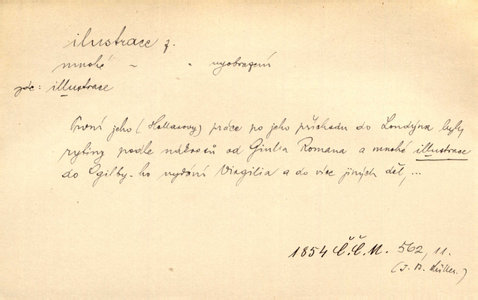 ilustrace f.
mnohé " " vyobrazení
zde: illustrace
První jeho (Hollarovy) práce po jeho příchodu do Londýna byly
rytiny podle nákresů od Giulia Romana a mnohé illustrace
do Ogilby-ho vydání Virgilia a do více jiných děl, ...
1854 Č.Č.M. 562, 11.
(J. B. Müller.)